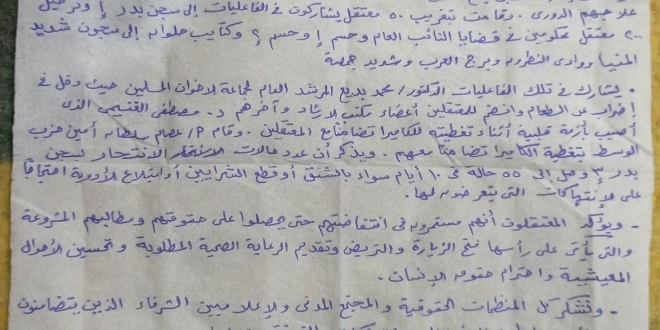 علاجهم الدورى. وقامت بتغريب ٥٠ معتقل يشاركون فى الفاعليات إلى سجن بدر ١ وترحيل
٢٠٠ معتقل محكومين فى قضايا النائب العام وحسم ١ وحسم ٢ وكتايب حلوان إلى سجون شديد
المنيا ووادى النطرون وبرج العرب وشديد جمصة
• يشارك فى تلك الفاعليات الدكتور/ محمد بديع المرشد العام لجماعة الاخوان المسلمين حيث دخل فى
إضراب عن الطعام وانضم للمعتقلين أعضاء مكتب الارشاد وآخرهم د. مصطفى الغنيمى الذى
أصيب بأزمة قلبية أثناء تغطيته للكاميرا تضامناً مع المعتقلين. وقام م/ عصام سلطان أمين حزب
الوسط بتغطية الكاميرا تضامناً معهم. ويذكر أن عدد حالات الانتحار بسجن
بدر ٣ وصل إلى ٥٥ حالة فى ١٠ أيام سواء بالشنق أو قطع الشرايين أو ابتلاع الأدوية احتجاجاً
على الانتهاكات التى يتعرضون لها.
- ويؤكد المعتقلون أنهم مستمرون فى انتفاضتهم حتى يحصلوا على حقوقهم ومطالبهم المشروعة
والتى يأتى على رأسها فتح الزيارة والتريض وتقديم الرعاية الصحية المطلوبة وتحسين الأحوال
المعيشية واحترام حقوق الإنسان.
- ونشكر كل المنظمات الحقوقية والمجتمع المدنى والإعلاميين الشرفاء الذين يتضامنون